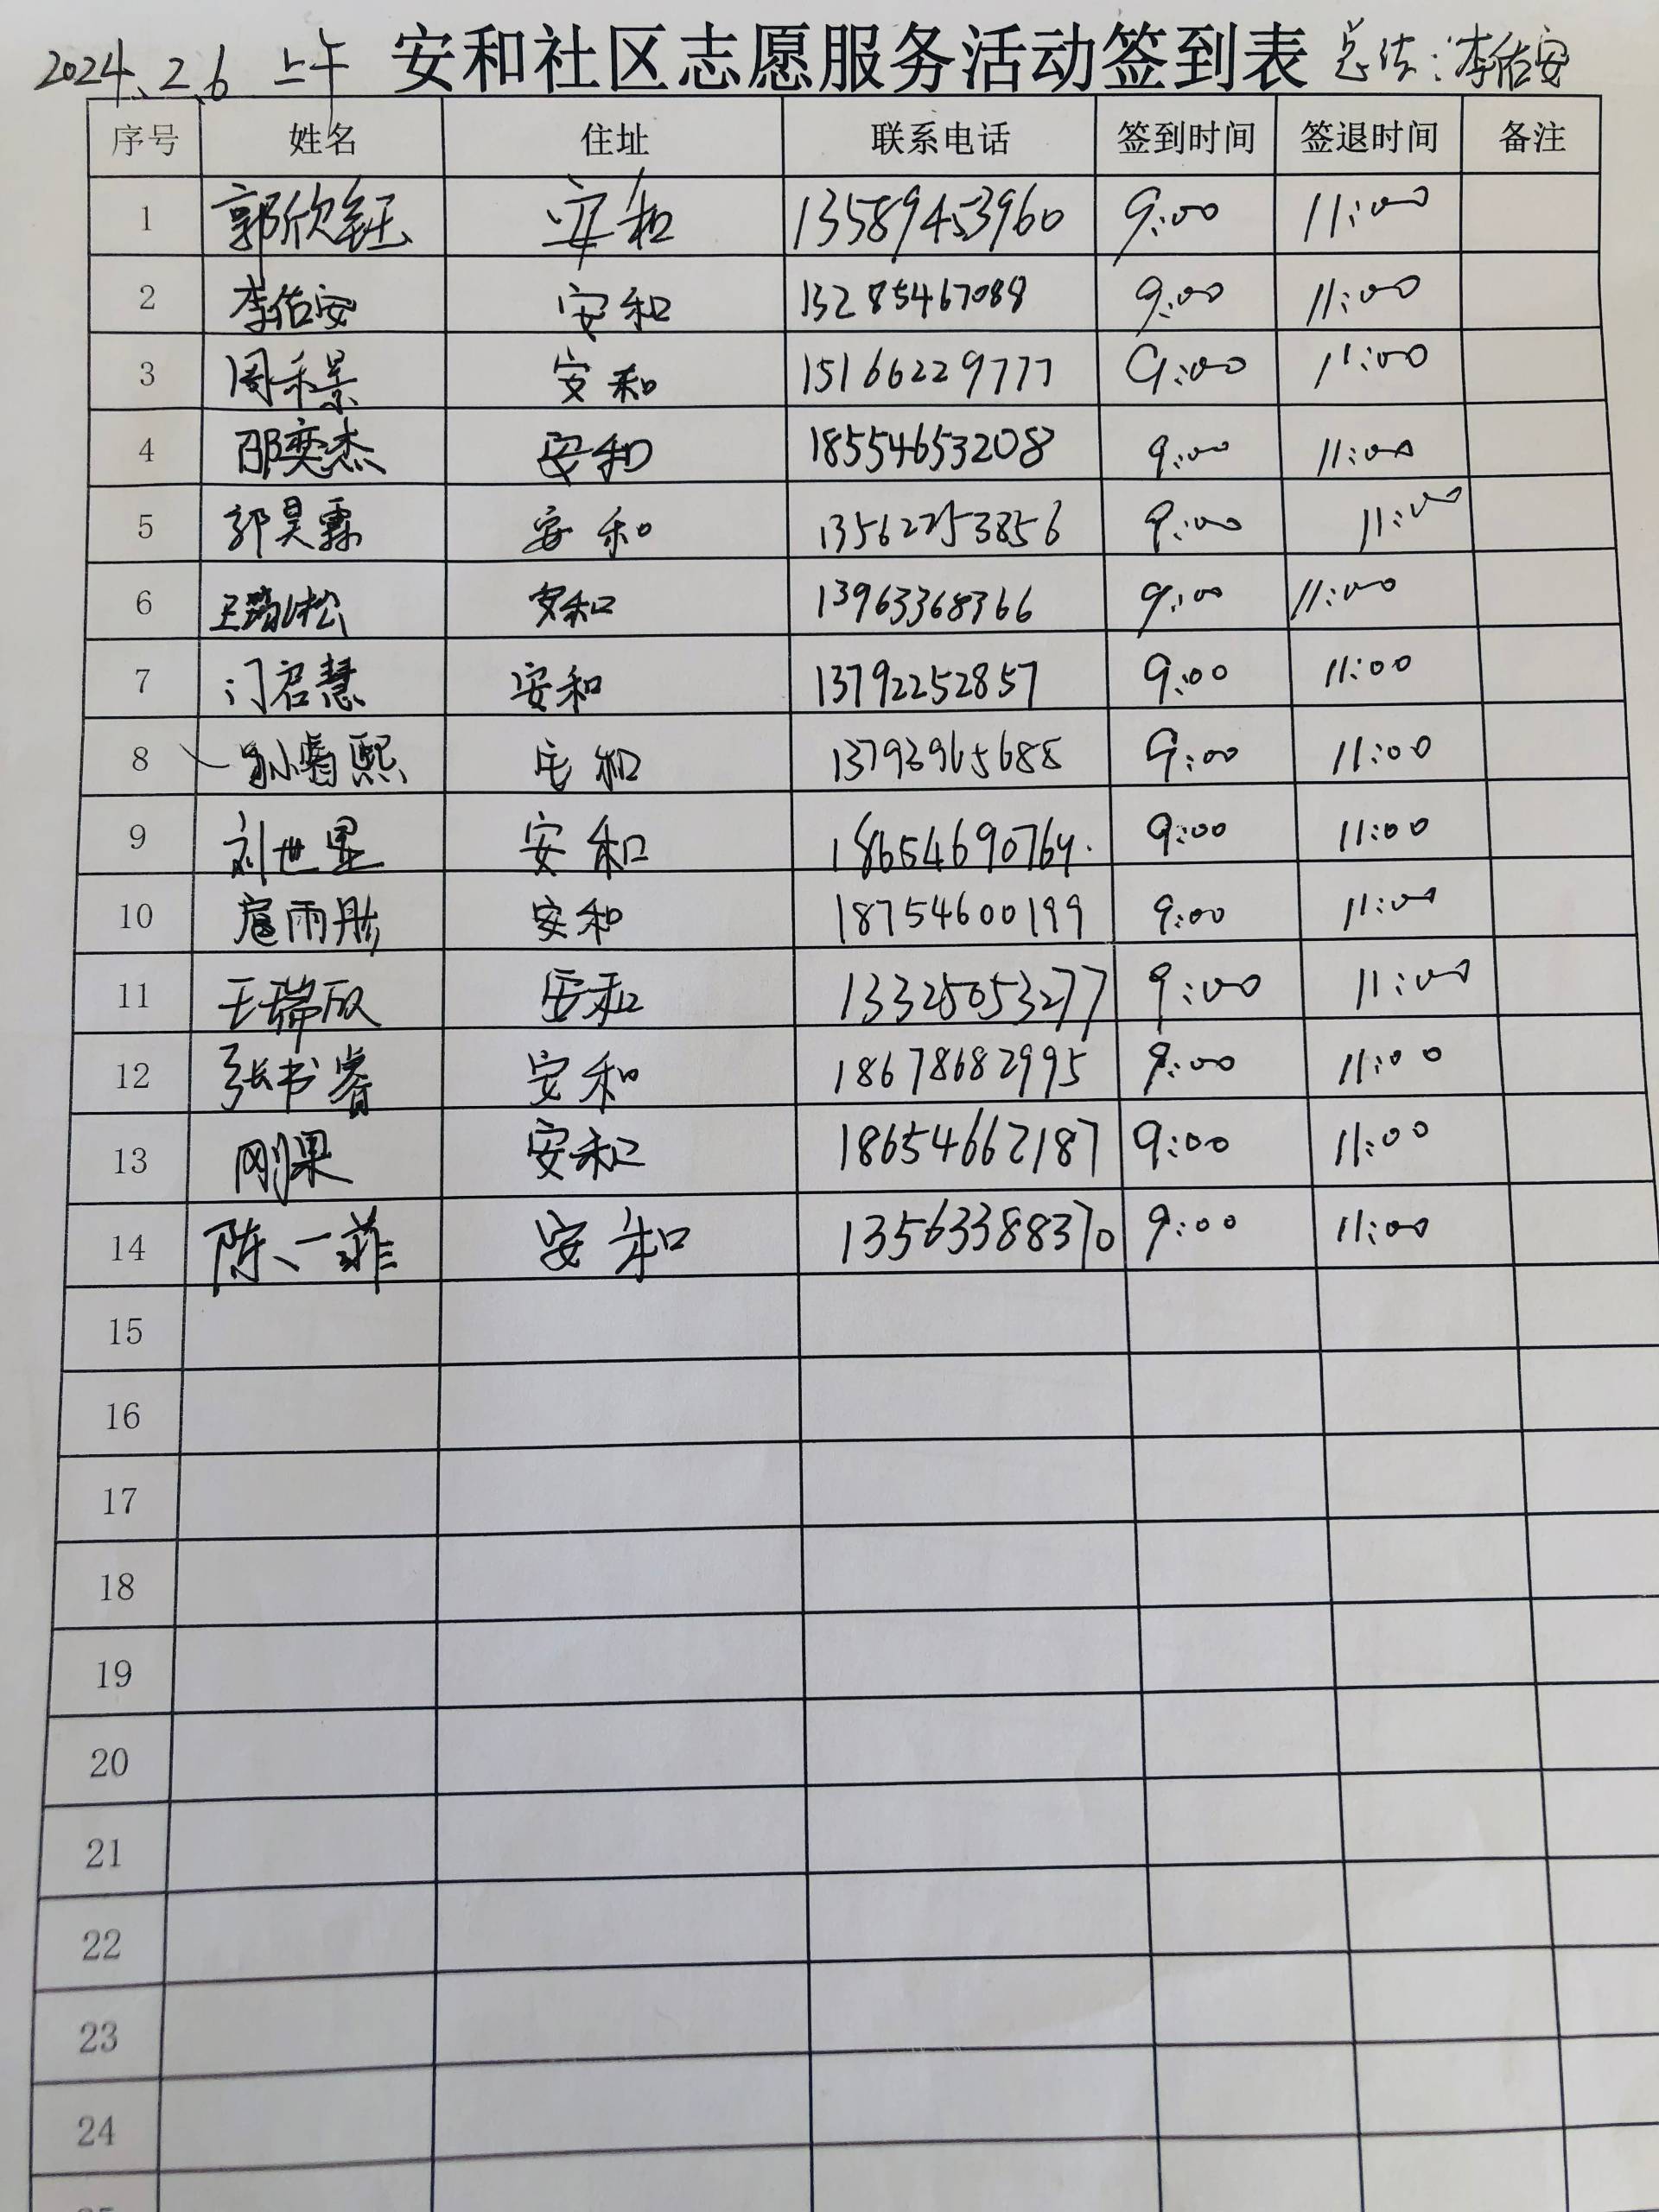 2024.2.6 上午 安和社区志愿服务活动签到表 总结:李佑安
序号 姓名 住址 联系电话 签到时间 签退时间 备注
1 郭欣钰 安和 13589453960 9:00 11:00
2 李佑安 安和 13285467088 9:00 11:00
3 周禾景 安和 15166229777 9:00 11:00
4 邵奕杰 安和 18554653208 9:00 11:00
5 郭昊霖 安和 13562253856 9:00 11:00
6 安和 13963368366 9:00 11:00
7 门君慧 安和 13792252857 9:00 11:00
8 孙睿熙 安和 13793965688 9:00 11:00
9 刘世星 安和 18654690764. 9:00 11:00
10 扈雨彤 安和 18754600199 9:00 11:00
11 王瑞欣 安和 13325053277 9:00 11:00
12 张书睿 安和 18678682995 9:00 11:00
13 刚果 安和 18654662187 9:00 11:00
14 陈一菲 安和 13563388370 9:00 11:00
15
16
17
18
19
20
21
22
23
24